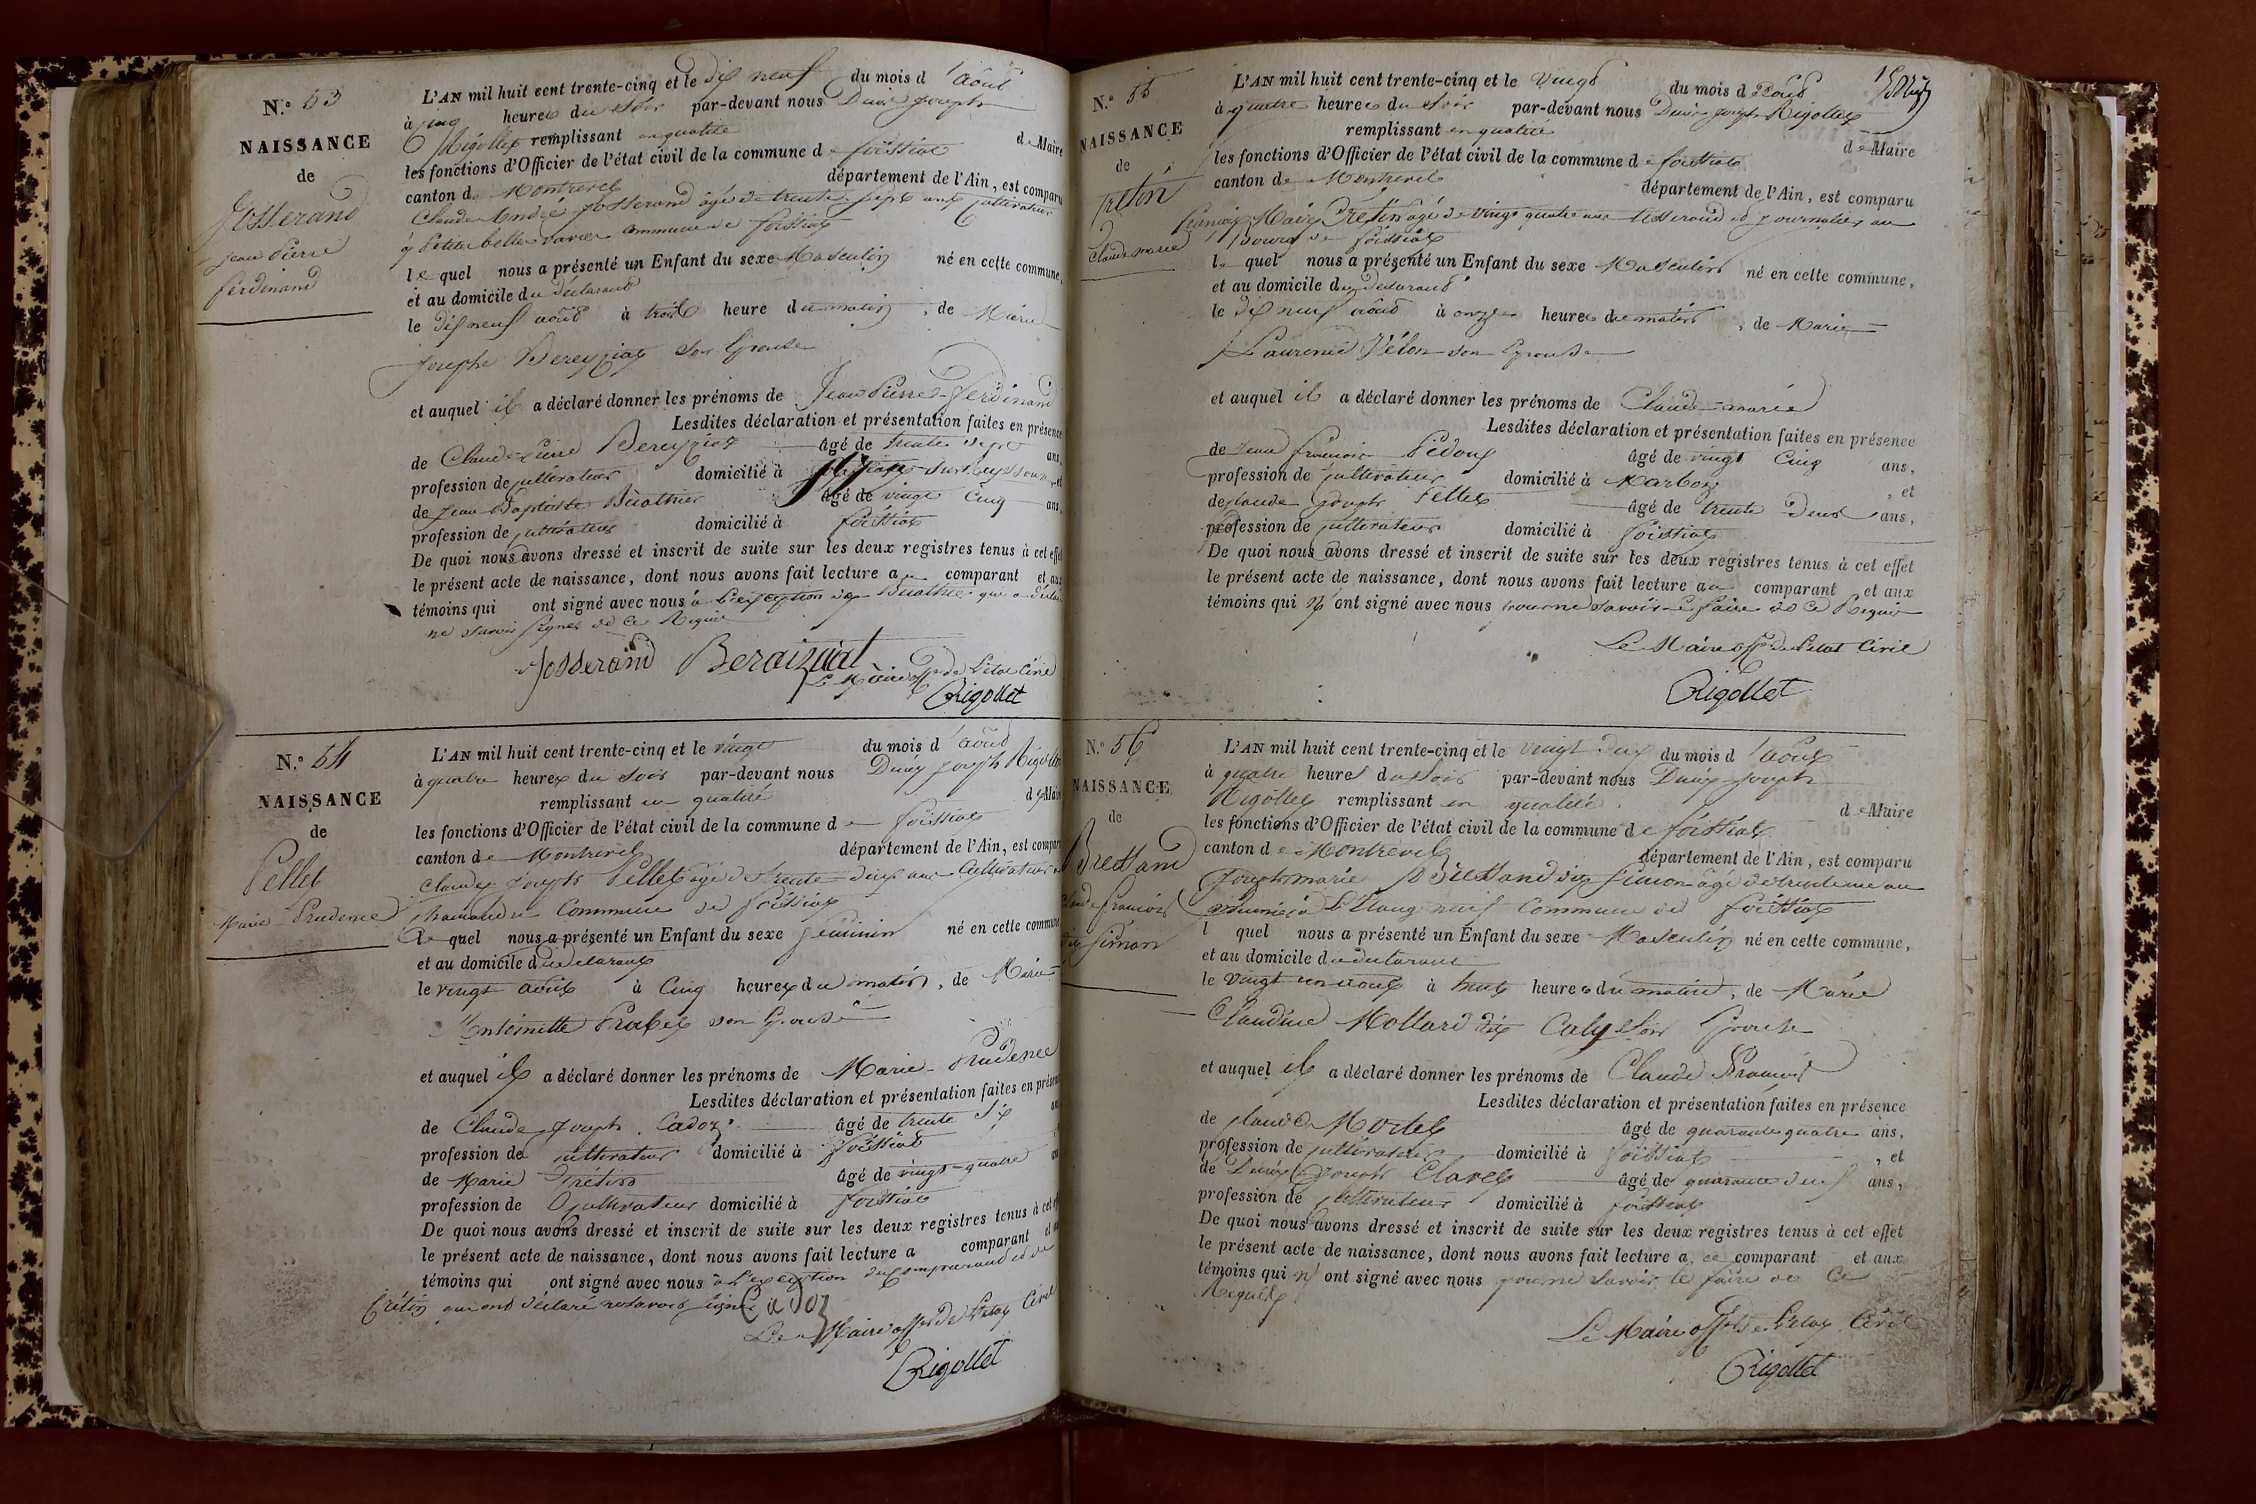 N.º 53
NAISSANCE
de
Josserand
jean Pierre
ferdinand
L'AN mil huit cent trente-cinq et le dix neuf du mois d'août
à cinq heures du soir par-devant nous Denis joseph
Rigollet remplissant en qualité de Maire
les fonctions d'Officier de l'état civil de la commune de foissiat
canton de Montrevel département de l'Ain, est comparu
Claude André Josserand âgé de trente sept ans cultivateur
commune de foissiat
le quel nous a présenté un Enfant du sexe Masculin né en cette commune,
et au domicile du déclarant
le dix neuf août à trois heure du matin, de Marie
josephe Bereyziat son Epouse
et auquel il a déclaré donner les prénoms de Jean Pierre-Ferdinand
Lesdites déclaration et présentation faites en présence
de Claude-Pierre Bereyziat âgé de trente sept ans,
profession de cultivateur domicilié à et
de Jean Baptiste Buathier âgé de vingt cinq ans,
profession de cultivateur domicilié à foissiat
De quoi nous avons dressé et inscrit de suite sur les deux registres tenus à cet effet
le présent acte de naissance, dont nous avons fait lecture au comparant et aux
témoins qui ont signé avec nous à l'exception de Buathier qui a déclaré
ne savoir signer de ce Requis
Josserand Beraiziat
Le Maire off. de l'état Civil
Rigollet
N.º 54
NAISSANCE
de
Pellet
Marie Prudence
L'AN mil huit cent trente-cinq et le vingt du mois d'août
à quatre heures du soir par-devant nous Denis joseph Rigollet
remplissant en qualité de Maire
les fonctions d'Officier de l'état civil de la commune de foissiat
canton de Montrevel département de l'Ain, est comparu
Claude joseph Pellet âgé de trente deux ans Cultivateur
Commune de foissiat
le quel nous a présenté un Enfant du sexe féminin né en cette commune
et au domicile du déclarant
le vingt août à Cinq heures du matin, de Marie
Antoinette son Epouse
et auquel il a déclaré donner les prénoms de Marie-Prudence
Lesdites déclaration et présentation faites en présence
de Claude joseph Cadoz âgé de trente six ans
profession de cultivateur domicilié à foissiat
de Marie Crétin âgé de vingt-quatre
profession de cultivateur domicilié à foissiat
De quoi nous avons dressé et inscrit de suite sur les deux registres tenus à cet
le présent acte de naissance, dont nous avons fait lecture a comparant
témoins qui ont signé avec nous à l'exception du comparant et de
Crétin qui ont déclaré ne savoir signer Cadoz
Le Maire off. de l'état Civil
Rigollet
N.º 55
NAISSANCE
de
Cretin
Claude marie
L'AN mil huit cent trente-cinq et le vingt du mois d'août
à quatre heures du soir par-devant nous Denis joseph Rigollet
remplissant en qualité de Maire
les fonctions d'Officier de l'état civil de la commune de foissiat
canton de Montrevel département de l'Ain, est comparu
Marie Crétin âgé de vingt quatre ans tisserand et journalier au
bourg de foissiat
le quel nous a présenté un Enfant du sexe Masculin né en cette commune,
et au domicile du déclarant
le dix neuf août à onze heures du matin, de Marie
Laurence Vélon son Epouse
et auquel il a déclaré donner les prénoms de Claude-marie
Lesdites déclaration et présentation faites en présence
de Jean françois Pidoux âgé de vingt cinq ans,
profession de cultivateur domicilié à Marboz, et
de claude joseph Pellet âgé de trente deux ans,
profession de cultivateur domicilié à foissiat
De quoi nous avons dressé et inscrit de suite sur les deux registres tenus à cet effet
le présent acte de naissance, dont nous avons fait lecture au comparant et aux
témoins qui n'ont signé avec nous pour ne savoir le faire de ce Requis
Le Maire off. de l'état Civil
Rigollet
N.º 56
NAISSANCE
de
Brettand
Claude françois
dit Simon
L'AN mil huit cent trente-cinq et le vingt deux du mois d'août
à quatre heures du soir par-devant nous Denis joseph
Rigollet remplissant en qualité de Maire
les fonctions d'Officier de l'état civil de la commune de foissiat
canton de Montrevel département de l'Ain, est comparu
Joseph marie Brettand dit Simon âgé de trente un ans
à l'Etang neuf commune de foissiat
l quel nous a présenté un Enfant du sexe Masculin né en cette commune,
et au domicile du déclarant
le vingt un août à huit heures du matin, de Marie
Claudine Mollard dit Caly son Epouse
et auquel il a déclaré donner les prénoms de Claude François
Lesdites déclaration et présentation faites en présence
de claude Morel âgé de quarante quatre ans,
profession de cultivateur domicilié à foissiat, et
de Denis joseph Clavel âgé de quarante deux ans,
profession de cultivateur domicilié à foissiat
De quoi nous avons dressé et inscrit de suite sur les deux registres tenus à cet effet
le présent acte de naissance, dont nous avons fait lecture a ce comparant et aux
témoins qui n'ont signé avec nous pour ne savoir le faire de ce
Requis
Le Maire off. de l'état Civil
Rigollet